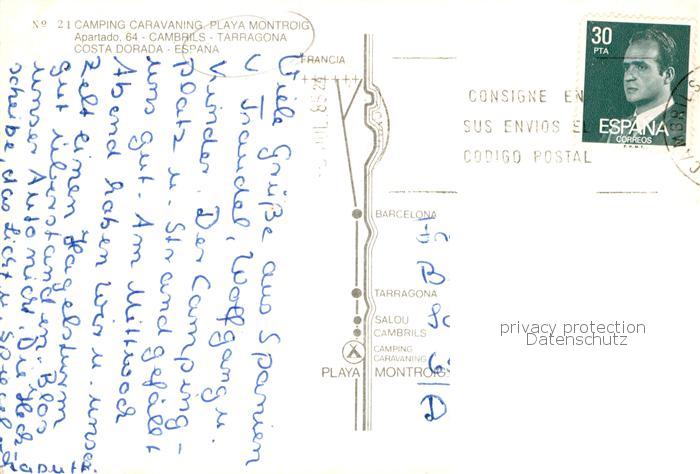 Nº 21 CAMPING CARAVANING, PLAYA MONTROIG
Apartado, 64 - CAMBRILS - TARRAGONA
COSTA DORADA - ESPAÑA
Viele Grüße aus Spanien
Traudel, Wolfgang u.
Kinder. Der Camping-
platz u. Strand gefällt
uns gut. Am Mittwoch
Abend haben wir u. unser
Zelt einen Hagelsturm
gut überstanden. Blos
unser Auto nicht. Die Heck-
scheibe, das Licht u. Spiegel
FRANCIA
BARCELONA
TARRAGONA
SALOU
CAMBRILS
CAMPING
CARAVANING
PLAYA MONTROIG
CONSIGNE EN
SUS ENVIOS EL
CODIGO POSTAL
30
PTA
ESPAÑA
CORREOS
privacy protection
Datenschutz